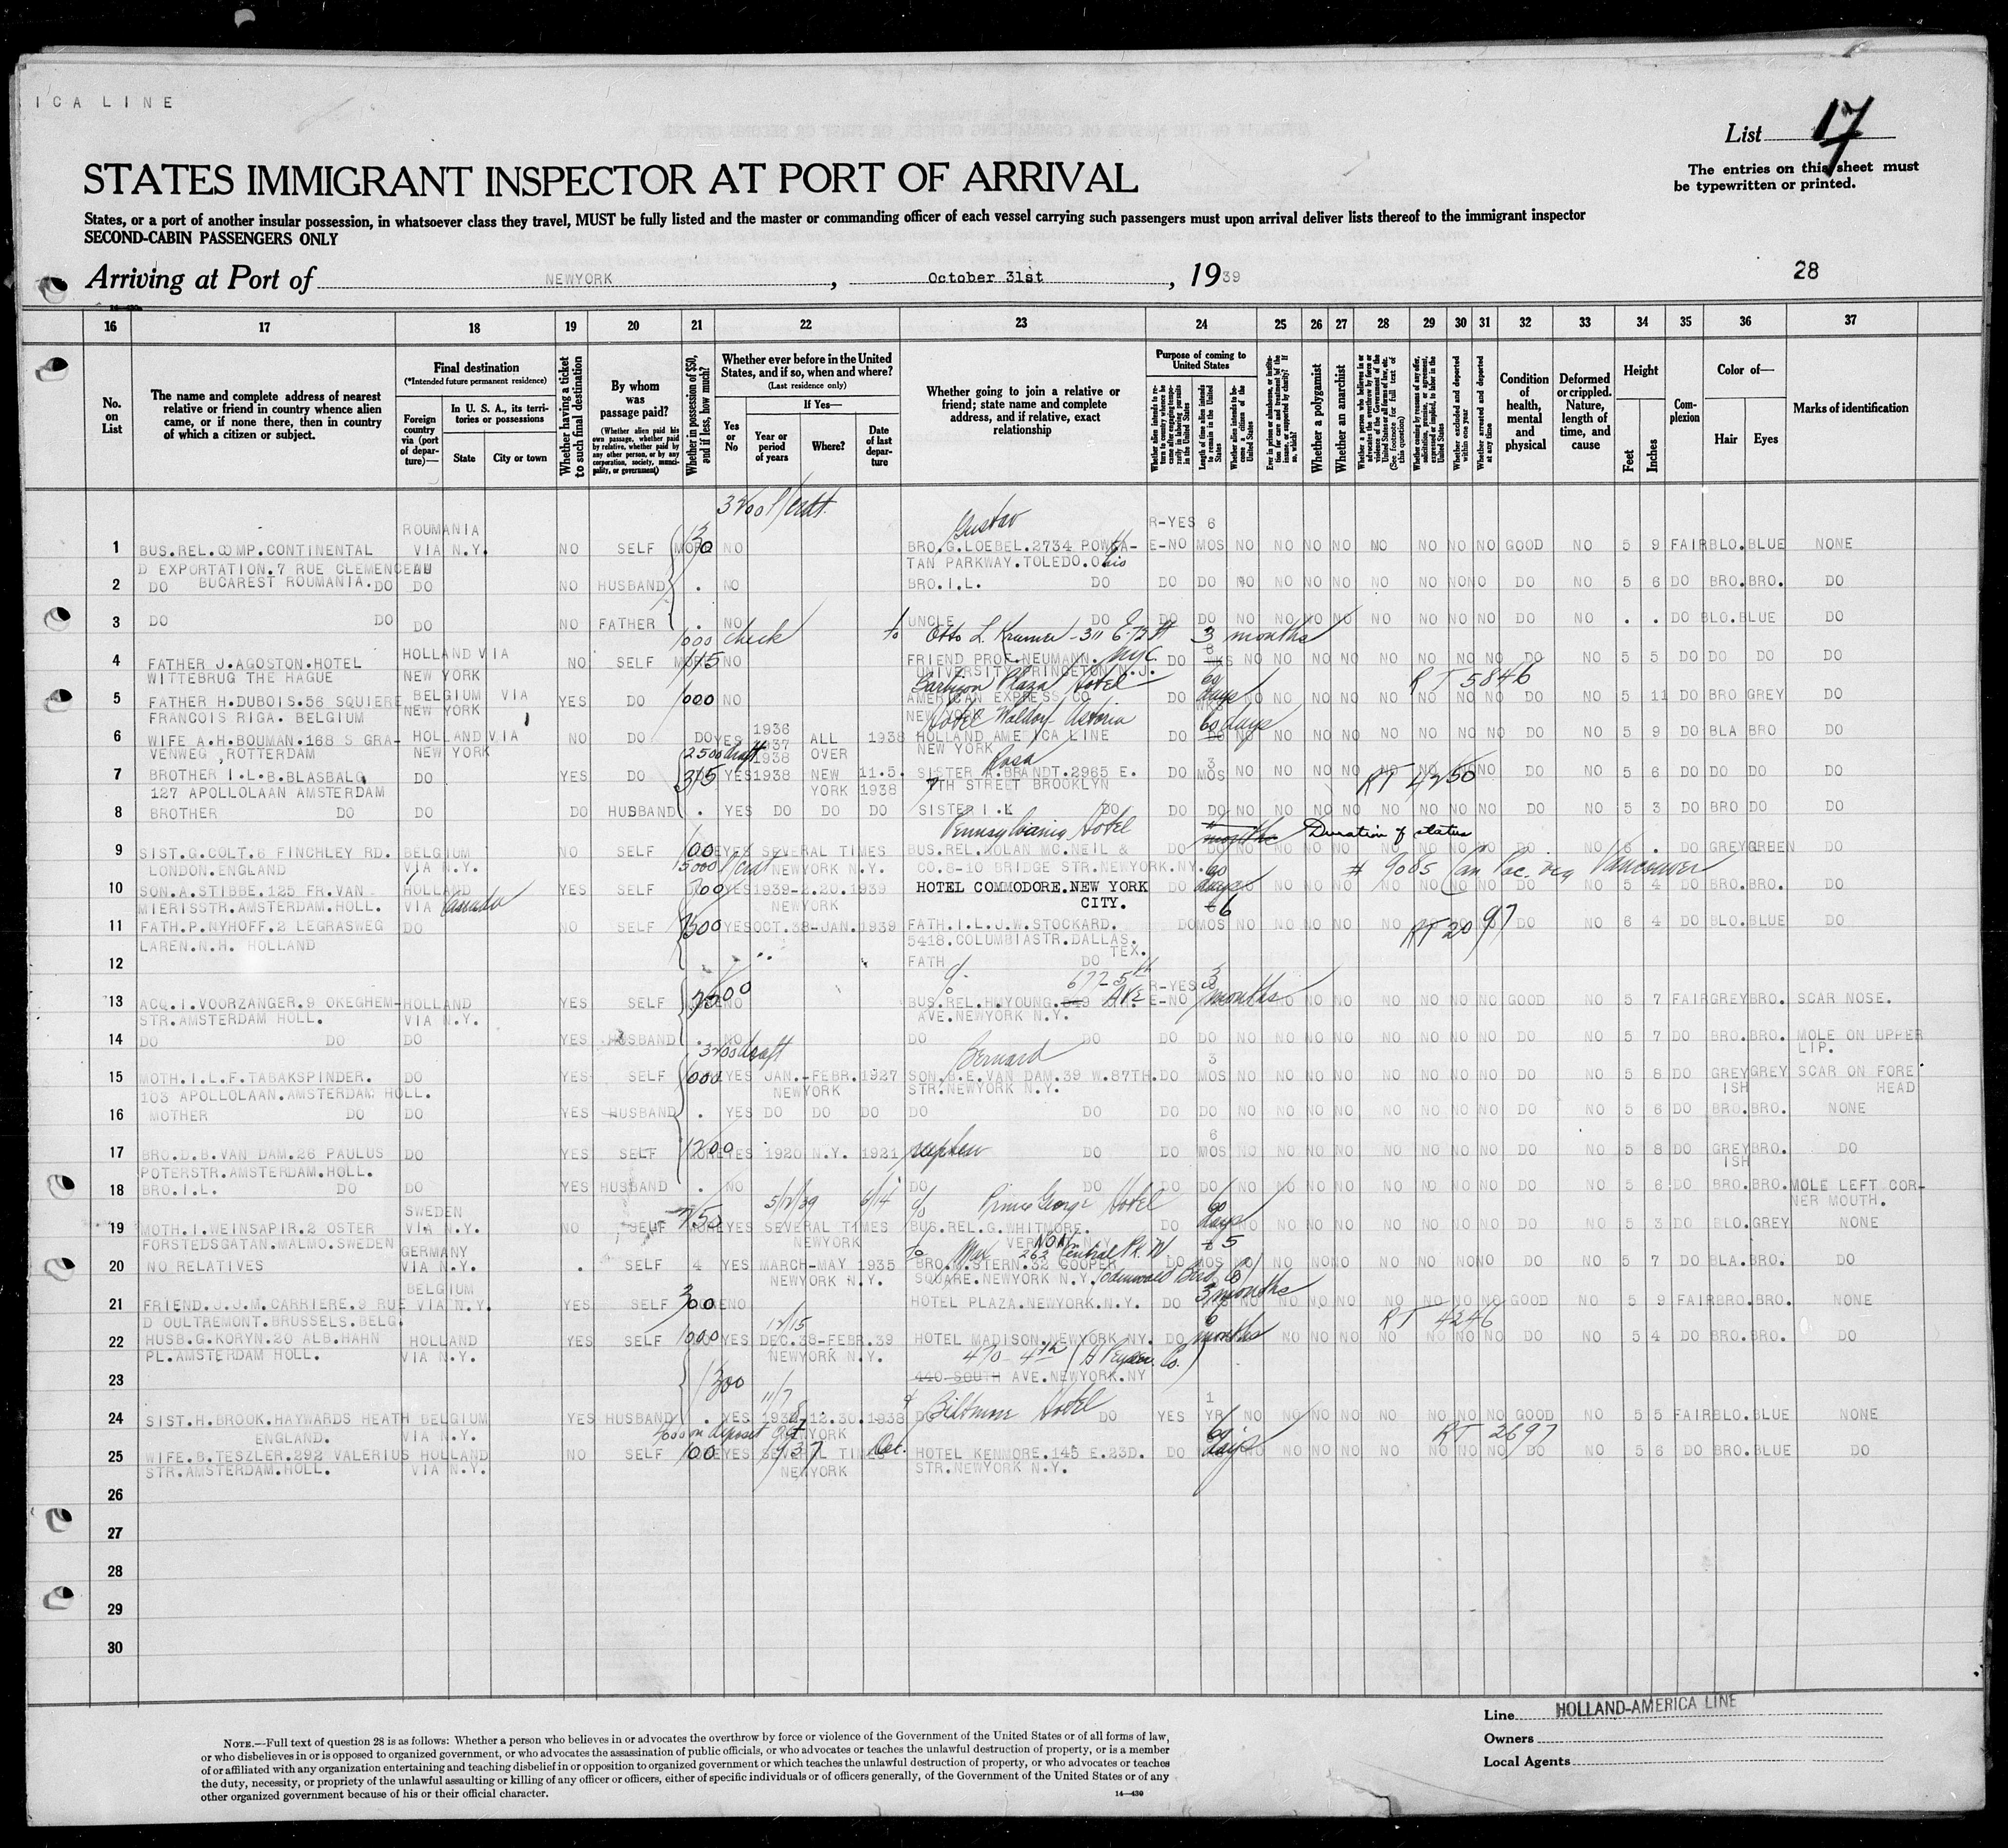 ICA LINE
List 17
The entries on this sheet must
be typewritten or printed.
STATES IMMIGRANT INSPECTOR AT PORT OF ARRIVAL
States, or a port of another insular possession, in whatsoever class they travel, MUST be fully listed and the master or commanding officer of each vessel carrying such passengers must upon arrival deliver lists thereof to the immigrant inspector
SECOND-CABIN PASSENGERS ONLY
Arriving at Port of NEWYORK, October 31st, 1939 28
16 17 18 19 20 21 22 23 24 25 26 27 28 29 30 31 32 33 34 35 36 37
No. on List
The name and complete address of nearest relative or friend in country whence alien came, or if none there, then in country of which a citizen or subject.
Final destination
(*Intended future permanent residence)
Foreign country via (port of departure)—
In U. S. A., its territories or possessions
State City or town
Whether having a ticket to such final destination
By whom was passage paid?
(Whether alien paid his own passage, whether paid by relative, whether paid by any other person, or by any corporation, society, municipality, or government)
Whether in possession of $50, and if less, how much?
Whether ever before in the United States, and if so, when and where?
(Last residence only)
Yes or No
If Yes—
Year or period of years
Where?
Date of last departure
Whether going to join a relative or friend; state name and complete address, and if relative, exact relationship
Purpose of coming to United States
Length of time alien intends to remain in the United States
Whether alien intends to become a citizen of the United States
Whether a polygamist
Whether an anarchist
Whether excluded and deported within one year
Whether arrested and deported at any time
Condition of health, mental and physical
Deformed or crippled. Nature, length of time, and cause
Height
Feet Inches
Complexion
Color of—
Hair Eyes
Marks of identification
Gustav
ROUMANIA R-YES 6
1 BUS.REL.COMP.CONTINENTAL VIA N.Y. NO SELF NO BRO.G.LOEBEL.2734 POWHA- E-NO MOS NO NO NO NO NO NO NO NO GOOD NO 5 9 FAIR BLO. BLUE NONE
D EXPORTATION.7 RUE CLEMENCEAU TAN PARKWAY.TOLEDO.Ohio
BUCAREST ROUMANIA.
2 DO DO DO NO HUSBAND . NO BRO.I.L. DO DO DO NO NO NO NO NO NO NO NO DO NO 5 6 DO BRO. BRO. DO
3 DO DO DO NO FATHER . NO UNCLE DO DO DO NO NO NO NO NO NO NO NO DO NO . . DO BLO. BLUE DO
1000 check to Otto L. Kramer - 311 E. 72 St 3 months
HOLLAND VIA NYC.
4 FATHER J.AGOSTON.HOTEL NEW YORK NO SELF NO FRIEND PROF.NEUMANN. DO NO NO NO NO NO NO NO NO DO NO 5 5 DO DO DO DO
WITTEBRUG THE HAGUE UNIVERSITY PRINCETON N.J.
Barbizon Plaza Hotel 60 days RT 5846
BELGIUM VIA
5 FATHER H.DUBOIS.56 SQUIERE NEW YORK YES DO NO AMERICAN EXPRESS CO. DO NO NO NO NO NO NO NO NO DO NO 5 11 DO BRO GREY DO
FRANCOIS RIGA. BELGIUM NEW YORK
Hotel Waldorf Astoria 60 days
1936
6 WIFE A.H.BOUMAN.168 S GRA- HOLLAND VIA NO DO DO YES 1937 ALL 1938 HOLLAND AMERICA LINE DO NO NO NO NO NO NO NO NO DO NO 5 9 DO BLA BRO DO
VENWEG ,ROTTERDAM NEW YORK 1938 OVER NEW YORK
2500 draft Rosa 3
7 BROTHER I.L.B.BLASBALG DO YES DO YES 1938 NEW 11.5. SISTER A.BRANDT.2965 E. DO MOS NO NO NO NO NO NO NO NO DO NO 5 6 DO DO DO DO
127 APOLLOLAAN AMSTERDAM YORK 1938 7TH STREET BROOKLYN RT 4250
8 BROTHER DO DO DO HUSBAND . YES DO DO DO SISTER I.L DO DO DO NO NO NO NO NO NO NO NO DO NO 5 3 DO BRO DO DO
Pennsylvania Hotel months Duration of status
9 SIST.G.COLT.6 FINCHLEY RD. BELGIUM NO SELF YES SEVERAL TIMES BUS.REL.NOLAN MC.NEIL & DO NO NO NO NO NO NO NO NO DO NO 6 . DO GREY GREEN DO
LONDON.ENGLAND VIA N.Y. NEWYORK N.Y. CO.8-10 BRIDGE STR.NEWYORK.NY.
# 9085 Can Pac. via Vancouver
10 SON.A.STIBBE.125 FR.VAN HOLLAND YES SELF YES 1939-2.20.1939 HOTEL COMMODORE.NEW YORK DO 60 days NO NO NO NO NO NO NO NO DO NO 5 4 DO BRO. BRO. DO
MIERISSTR.AMSTERDAM.HOLL. VIA Canada NEWYORK CITY.
6
11 FATH.P.NYHOFF.2 LEGRASWEG DO NO SELF YES OCT.38-JAN.1939 FATH.I.L.J.W.STOCKARD. DO MOS NO NO NO NO NO NO NO NO DO NO 6 4 DO BLO. BLUE DO
LAREN.N.H. HOLLAND 5418.COLUMBIASTR.DALLAS. RT 2097
TEX.
12 FATH DO
677 - 5th R-YES 3
13 ACQ.I.VOORZANGER.9 OKEGHEM- HOLLAND YES SELF NO BUS.REL.H.YOUNG. Ave E-NO months NO NO NO NO NO NO NO GOOD NO 5 7 FAIR GREY BRO. SCAR NOSE.
STR.AMSTERDAM HOLL. VIA N.Y. AVE.NEWYORK N.Y.
14 DO DO DO YES HUSBAND . NO DO DO DO DO NO NO NO NO NO NO NO NO DO NO 5 7 DO BRO. BRO. MOLE ON UPPER
LIP.
3200 draft Bernard 3
15 MOTH.I.L.F.TABAKSPINDER. DO YES SELF YES JAN.-FEBR.1927 SON.B.E.VAN DAM.39 W.87TH. DO MOS NO NO NO NO NO NO NO NO DO NO 5 8 DO GREY GREY SCAR ON FORE
103 APOLLOLAAN.AMSTERDAM HOLL. NEWYORK STR.NEWYORK N.Y. ISH HEAD
16 MOTHER DO DO YES HUSBAND . YES DO DO DO DO DO DO DO NO NO NO NO NO NO NO NO DO NO 5 6 DO BRO. BRO. NONE
6
17 BRO.D.B.VAN DAM.26 PAULUS DO YES SELF 1200 YES 1920 N.Y. 1921 nephew DO DO MOS NO NO NO NO NO NO NO NO DO NO 5 8 DO GREY BRO. DO
POTERSTR.AMSTERDAM.HOLL. ISH
18 BRO.I.L. DO DO YES HUSBAND . NO DO DO DO DO NO NO NO NO NO NO NO NO DO NO 5 6 DO BRO. BRO. MOLE LEFT COR-
NER MOUTH.
SWEDEN 5/12/39 5/14 c/o Prince George Hotel 60 days
19 MOTH.I.WEINSAPIR.2 OSTER VIA N.Y. NO SELF YES SEVERAL TIMES BUS.REL.G.WHITMORE. DO NO NO NO NO NO NO NO NO DO NO 5 3 DO BLO. GREY NONE
FORSTEDSGATAN.MALMO.SWEDEN NEWYORK VERNON N.Y.
GERMANY to Max 262 Central Pk. W 5
20 NO RELATIVES VIA N.Y. . SELF 4 YES MARCH-MAY 1935 BRO.M.STERN.32 COOPER DO MOS NO NO NO NO NO NO NO NO DO NO 5 7 DO BLA. BRO. DO
NEWYORK N.Y. SQUARE.NEWYORK N.Y.
BELGIUM 3 months
21 FRIEND.J.J.M.CARRIERE.9 RUE VIA N.Y. YES SELF NO HOTEL PLAZA.NEWYORK.N.Y. DO NO NO NO NO NO NO NO NO GOOD NO 5 9 FAIR BRO. BRO. NONE
D OULTREMONT.BRUSSELS.BELG.
12/15 6 RT 4246
22 HUSB.G.KORYN.20 ALB.HAHN HOLLAND YES SELF 1000 YES DEC.38-FEBR.39 HOTEL MADISON.NEWYORK NY. DO months NO NO NO NO NO NO NO DO NO 5 4 DO BRO. BRO. DO
PL.AMSTERDAM HOLL. VIA N.Y. NEWYORK N.Y.
470 - 4th
23 440 SOUTH AVE.NEWYORK.NY
11/7 Biltmore Hotel 1
24 SIST.H.BROOK.HAYWARDS HEATH BELGIUM YES HUSBAND . YES 1938 12.30.1938 DO YES YR NO NO NO NO NO NO NO NO GOOD NO 5 5 FAIR BLO. BLUE NONE
ENGLAND. VIA N.Y. on deposit 60 days RT 2697
25 WIFE.B.TESZLER.292 VALERIUS HOLLAND NO SELF YES SEVERAL TIMES Dec. HOTEL KENMORE.145 E.23D. DO NO NO NO NO NO NO NO DO NO 5 6 DO BRO. BLUE DO
STR.AMSTERDAM.HOLL. VIA N.Y. NEWYORK STR.NEWYORK N.Y.
26
27
28
29
30
Line HOLLAND-AMERICA LINE
Owners
Local Agents
NOTE.—Full text of question 28 is as follows: Whether a person who believes in or advocates the overthrow by force or violence of the Government of the United States or of all forms of law,
or who disbelieves in or is opposed to organized government, or who advocates the assassination of public officials, or who advocates or teaches the unlawful destruction of property, or is a member
of or affiliated with any organization entertaining and teaching disbelief in or opposition to organized government or which teaches the unlawful destruction of property, or who advocates or teaches
the duty, necessity, or propriety of the unlawful assaulting or killing of any officer or officers, either of specific individuals or of officers generally, of the Government of the United States or of any
other organized government because of his or their official character.
14—430